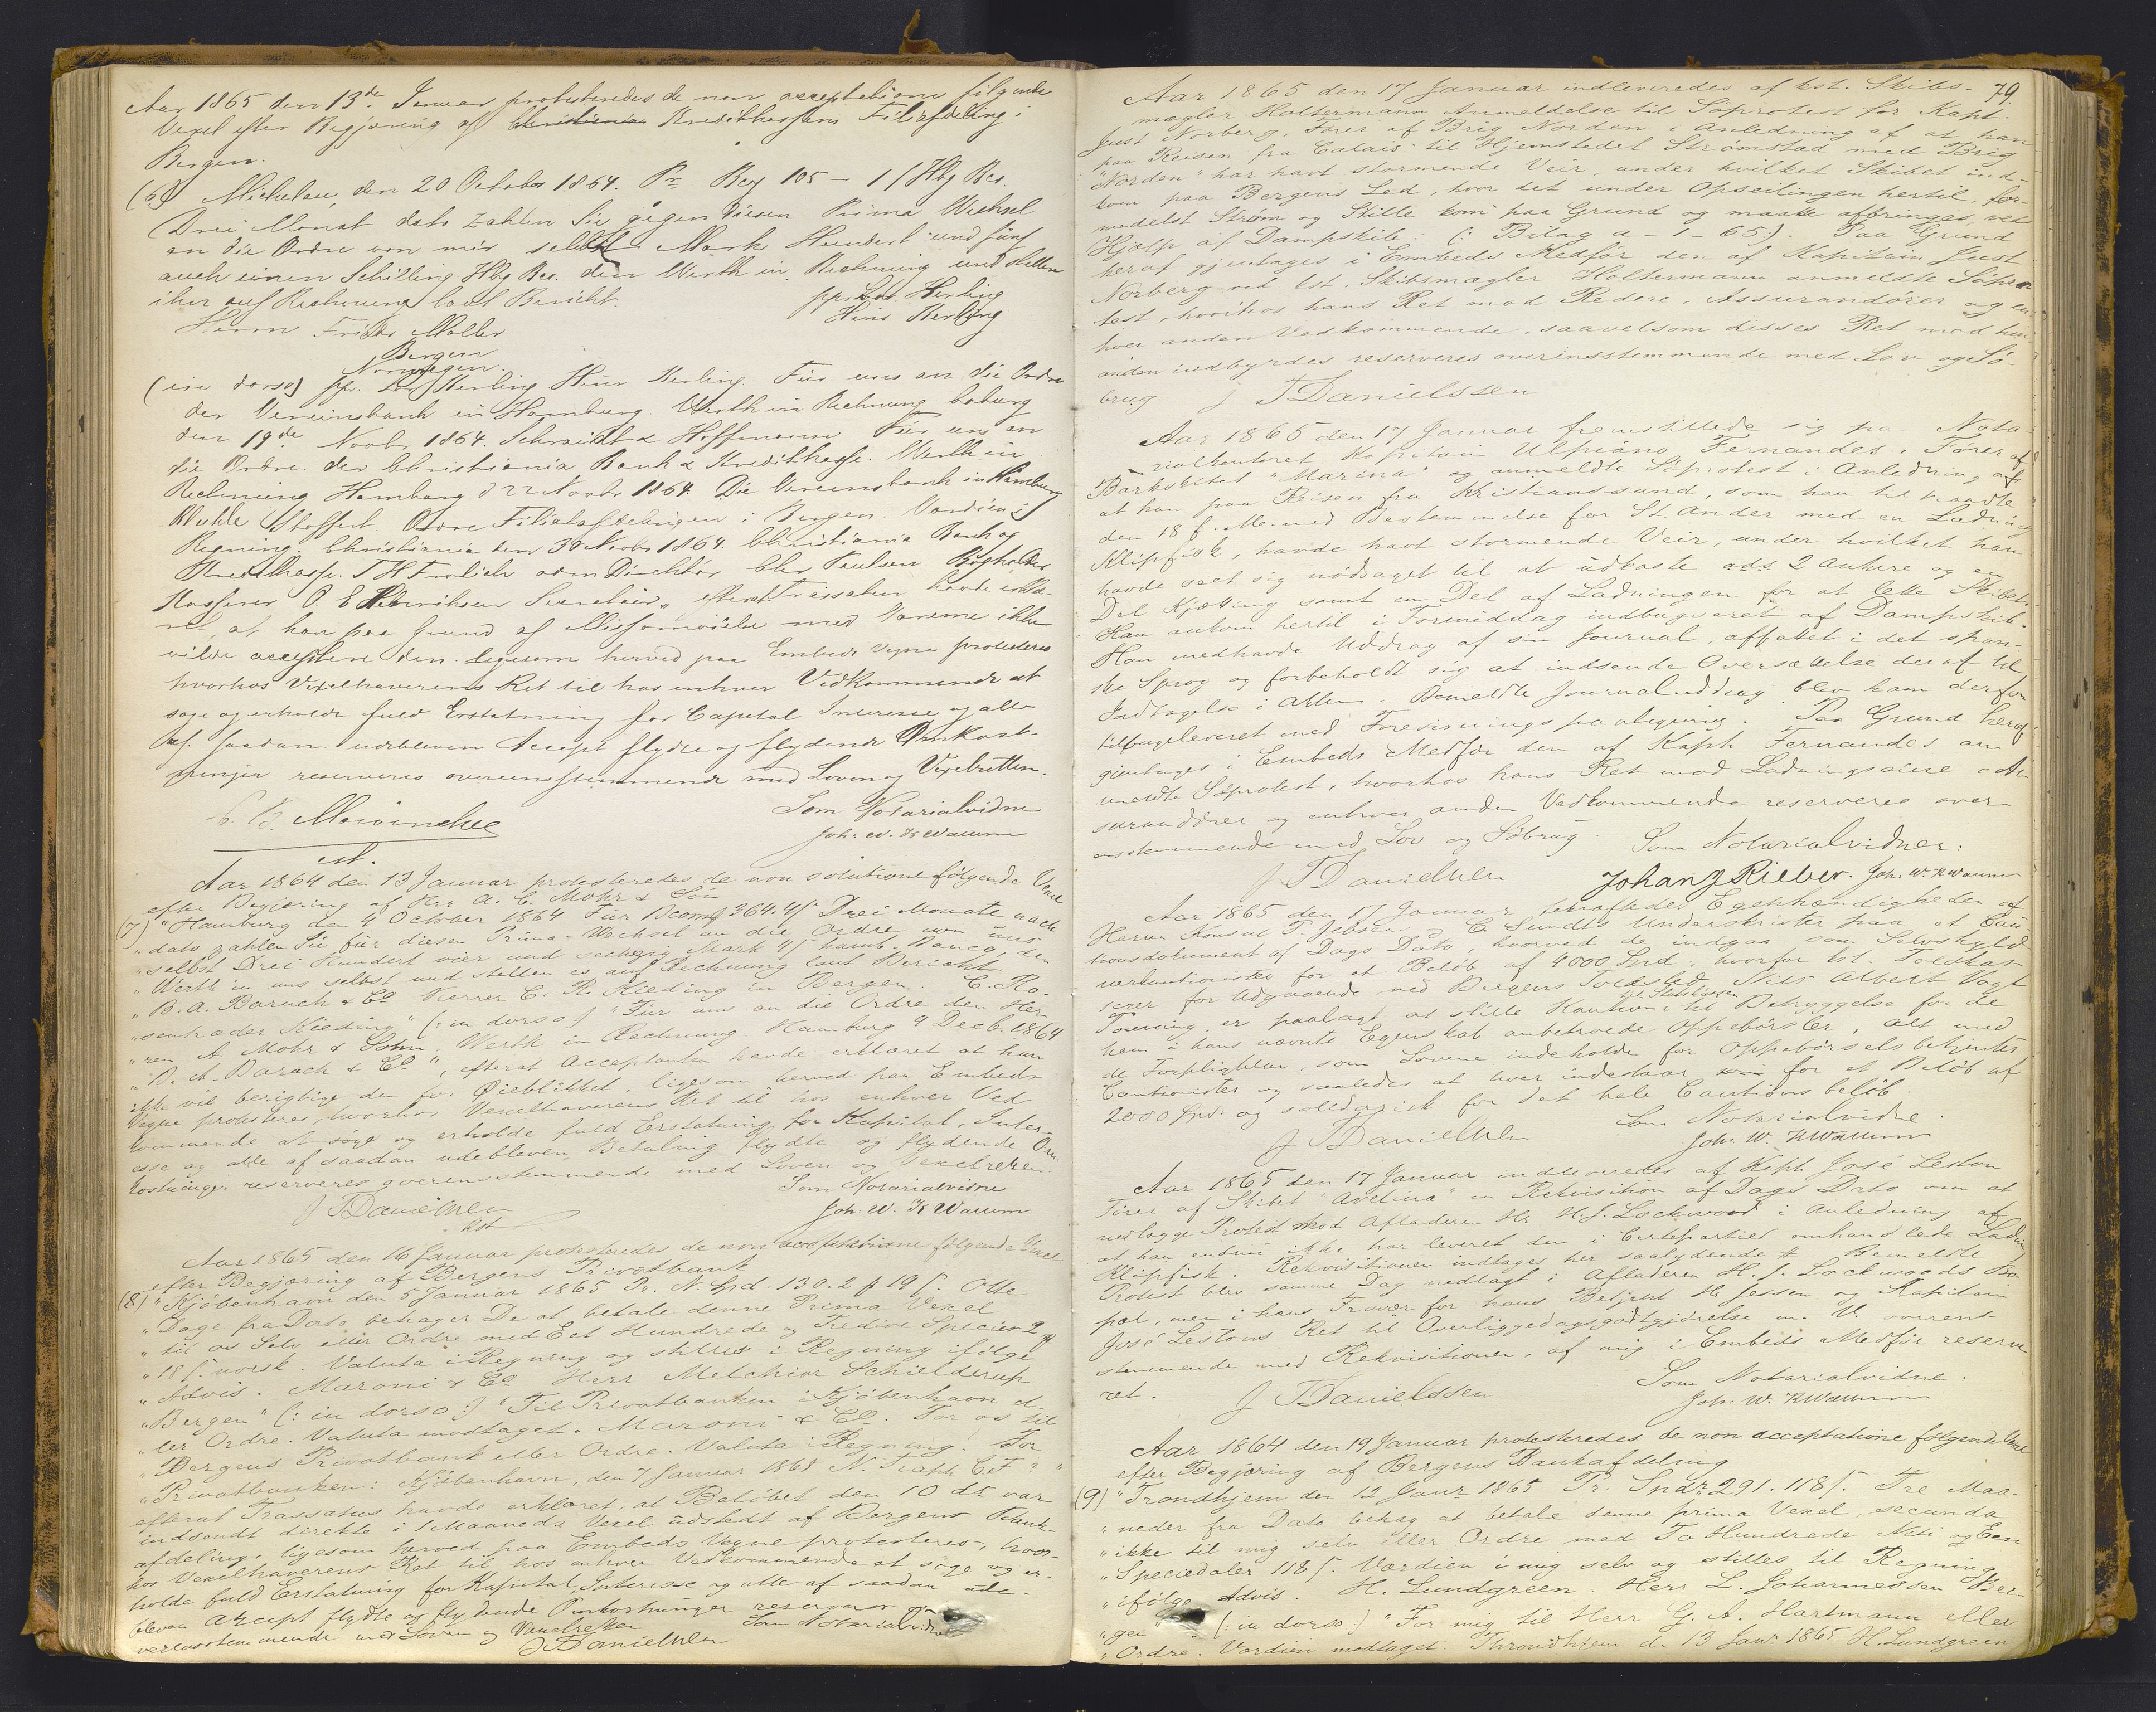 Aar 1865 den 13de Januar protesteredes de non acceptatione følgende
Vexel efter Begjæring af Christiania Kreditkasses Filialafdeling i
Bergen.
(6) Michelau, den 20 October 1864. Pr Bco 105 – 1 ƒ Hbg Bco.
Drei Monat dato zahlen Sie gegen diesen Prima Wechsel
an die Ordre von mir selbst Mark Hundert und fünf
auch einen Schilling Hbg Bco. den Werth in Rechnung und stellen
ihn auf Rechnung laut Bericht.
Herrn Friedr Møller
Bergen
Norwegen.
(in dorso) pp. Kerling Hinr Kerling. Für uns an die Ordre
der Vereinsbank in Hamburg. Werth in Rechnung Coburg
den 19de Novbr 1864. Schmidt & Hoffmann Für uns an
die Ordre der Christiania Bank & Kreditkasse. Werth in
Rechnung Hamburg d 22 Novbr 1864. Die Vereinsbank in Hamburg
Ordre Filialafdelingen i Bergen. Værdien i
Regning. Christiania den 30 Novbr 1864. Christiania Bank og
Kreditkasse. T H Frølich adm Direktør Chr Paulsen Bogholder
Kasserer P. E Henriksen Secretair", efterat Trassaten havde erklæ-
ret, at han paa Grund af Misfornøielse med Varerne ikke
vilde acceptere den. ligesom herved paa Embeds Vegne protesteres
hvorhos Vexelhaverens Ret til hos enhver Vedkommende at
søge og erholde fuld Erstatning for Capital Interesse og alle
af saadan udebleven Accept flydte og flydende Omkost-
ninger reserveres overeensstemmende med Loven og Vexelretten.
Som Notarialvidne
Joh. W. Kwamm
Aar 1864 den 13 Januar protesteredes de non solutione følgende Vexel
efter Begjæring af Hrr A. C. Mohr & Søn
(7) "Hamburg den 4 October 1864 Für Bcomk 364.4ƒ Drei Monate nach
"dato zahlen Sie für diesen Prima-Wechsel an die Ordre von uns
"selbst Drei Hundert vier und sechszig Mark 4ƒ hamb. Banco, den
"Werth in uns selbst und stellen es auf Rechnung laut Bericht.
"B. A. Baruch & Co Herrn C. R. Kieding in Bergen. C. Ro-
"senkrader Kieding" (: in dorso :) "Für uns an die Ordre den Her-
"ren A. Mohr & Sohn. Werth in Rechnung Hamburg 4 Decb. 1864
"B. A. Baruch & Co", efterat Acceptanten havde erklæret at han
ikke vil berigtige den for Øieblikket, ligesom herved paa Embeds
Vegne protesteres, hvorhos Vexelhaverens Ret til hos enhver Ved-
kommende at søge og erholde fuld Erstatning for Kapital, Inter-
esse og alle af saadan udebleven Betaling flydte og flydende Om-
kostninger reserveres overensstemmende med Loven og Vexelretten.
Som Notarialvidne
J Danielssen Joh. W. Kwamm
Kst
Aar 1865 den 16 Januar protesteredes de non acceptatione følgende Vexel
efter Begjæring af Bergens Privatbank
(8) "Kjøbenhavn den 5 Januar 1865 Pr. N. Spd. 130. 2 ƒ 19 ƒ. Otte
"Dage fra Dato behager De at betale denne Prima Vexel
"til os Selv eller Ordre med Eet Hundrede og Tredive Species 2
"18 ƒ norsk. Valuta i Regning og stilles i Regning ifølge
"Advis. Maroni & Co Herr Melchior Schielderup
"Bergen" (: in dorso :) "Til Privatbanken i Kjøbenhavn el-
"ler Ordre. Valuta modtaget. Maroni & Co. For os til
"Bergens Privatbank eller Ordre. Valuta i Regning. For
"Privatbanken: Kjøbenhavn, den 7 Januar 1865
efterat Trassatus havde erklæret, at Beløbet den 10 ds var
indsendt direkte i 1 Maaneds Vexel udstedt af Bergens Bank-
afdeling, ligesom herved paa Embeds Vegne protesteres, hvor-
hos Vexelhaverens Ret til hos enhver Vedkommende at søge og er-
holde fuld Erstatning for Kapital, Interesse og alle af saadan ude-
bleven Accept flydte og flydende Omkostninger reserveres o-
verensstemmende med Loven og Vexelretten Som Notarialvidne
J Danielssen
79.
Aar 1865 den 17 Januar indleveredes af kst. Skibs-
mægler Holtermann Anmeldelse til Søprotest for Kapt.
Just Norberg, Fører af Brig Norden i Anledning af at han
paa Reisen fra Calais til Hjemstedet Strømstad med Brig
"Norden" har havt stormende Veir, under hvilket Skibet ind-
kom paa Bergens Led, hvor det under Opseilingen hertil, for-
medelst Strøm og Stille kom paa Grund og maatte afbringes ved
Hjælp af Dampskib: (: Bilag a – 1 – 65 :). Paa Grund
heraf gjentages i Embeds Medfør den af Kapitain Just
Norberg ved kst. Skibsmægler Holtermann anmeldte Søpro-
test, hvorhos hans Ret mod Redere, Assurandører og en-
hver anden Vedkommende, saavelsom disses Ret mod hin-
anden indbyrdes reserveres overensstemmende med Lov og Sø-
brug. J Danielssen
Aar 1865 den 17 Januar fremstillede sig paa Nota-
rialkontoret Kapitain Ulpiano Fernandes, Fører af
Barkskibet "Marina" og anmeldte Søprotest i Anledning af
at han paa Reisen fra Kristianssund, som han tiltraadte
den 18 f. M. med Bestemmelse for St. Ander med en Ladning
Klipfisk, havde havt stormende Veir, under hvilket han
havde seet sig nødsaget til at udkaste 2 Ankere og en
Del Kjætting samt en Del af Ladningen for at lette Skibet.
Han ankom hertil i Formiddag indbugseret af Dampskib.
Han medhavde Uddrag af sin Journal, affattet i det span-
ske Sprog og forbeholdt sig at indsende Oversættelse deraf til
Indtagelse i Akten. Bemeldte Journaluddrag blev ham derfor
tilbageleveret med Forevisningspaategning. Paa Grund heraf
gjentages i Embeds Medfør den af Kapt. Fernandes an-
meldte Søprotest, hvorhos hans Ret mod Ladningseiere, As-
surandører og enhver anden Vedkommende reserveres over-
ensstemmende med Lov og Søbrug. Som Notarialvidner:
J Danielssen Johan Z Rieber. Joh. W. Kwamm
Aar 1865 den 17 Januar bekræftedes Egenhændigheden af
Herrer Konsul P. Jebsen og C Sundts Underskrifter paa et Cau-
tionsdokument af Dags Dato, hvorved de indgaa som Selvskyld
nerkautionister for et Beløb af 4000 Spd, hvorfor kst. Toldkas-
serer for Udgaaende ved Bergens Toldsted, Nils Albert Vogt
Tourning, er paalagt at stille Kaution til Statskassen til Betryggelse for de
ham i hans nævnte Egenskab anbetroede Oppebørsler, Alt med
de Forpligtelser, som Lovene indeholde for Oppebørselsbetjentes
Cautionister og saaledes at hver indestaar for et Beløb af
2000 Spd. og solidarisk for det hele Cautionsbeløb.
Som Notarialvidne.
J Danielssen Joh. W. Kwamm
Aar 1865 den 17 Januar indleveredes af Kapt. José Leston
Fører af Skibet "Avelina" en Rekvisition af Dags Dato om at
nedlægge Protest mod Afladeren Hr H. J. Lockwood i Anledning af
at han endnu ikke har leveret den i Certepartiet omhandlede Ladning
Klipfisk. Rekvisitionen indtages her saalydende # Bemeldte
Protest blev samme Dag nedlagt i Afladeren H. J. Lockwoods Bo-
pæl, men i hans Fravær for hans Betjent Hr Jessen og Kapitain
José Lestons Ret til Overliggedagsgodtgjørelse m. V. overens-
stemmende med Rekvisitionen, af mig i Embeds Medfør reserve-
ret. Som Notarialvidne.
J Danielssen Joh. W. Kwamm
Aar 1864 den 19 Januar protesteredes de non acceptatione følgende Vexel
efter Begjæring af Bergens Bankafdeling
(9) "Trondhjem den 12 Janr 1865 Pr. Spdr 291. 118 ƒ. Tre Maa-
"neder fra Dato behag at betale denne prima Vexel, secunda
"ikke til mig selv eller Ordre med To Hundrede Niti og Een
"Speciedaler 118 ƒ. Værdien i mig selv og stilles til Regning
"ifølge Advis. H. Lundgreen. Herr L. Johannessen Ber-
"gen" (: in dorso :) "For mig til Herr G. A. Hartmann eller
"Ordre. Værdien modtaget. Throndhjem d. 13 Janr 1865 H. Lundgreen